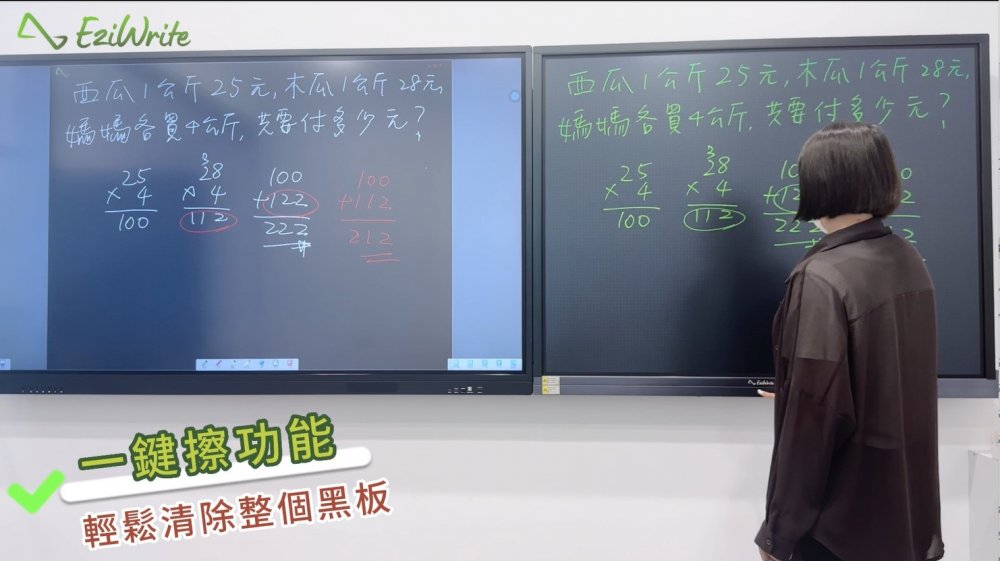 EziWrite
西瓜1公斤25元,木瓜1公斤28元,
媽媽各買4公斤,共要付多少元?
25
× 4
100
3
28
× 4
112
100
+122
222
100
+112
212
西瓜1公斤25元,木瓜1公斤28元,
媽媽各買4公斤,共要付多少元?
25
× 4
100
3
28
× 4
112
10
+12
222
0
2
EziWrite
一鍵擦功能
輕鬆清除整個黑板